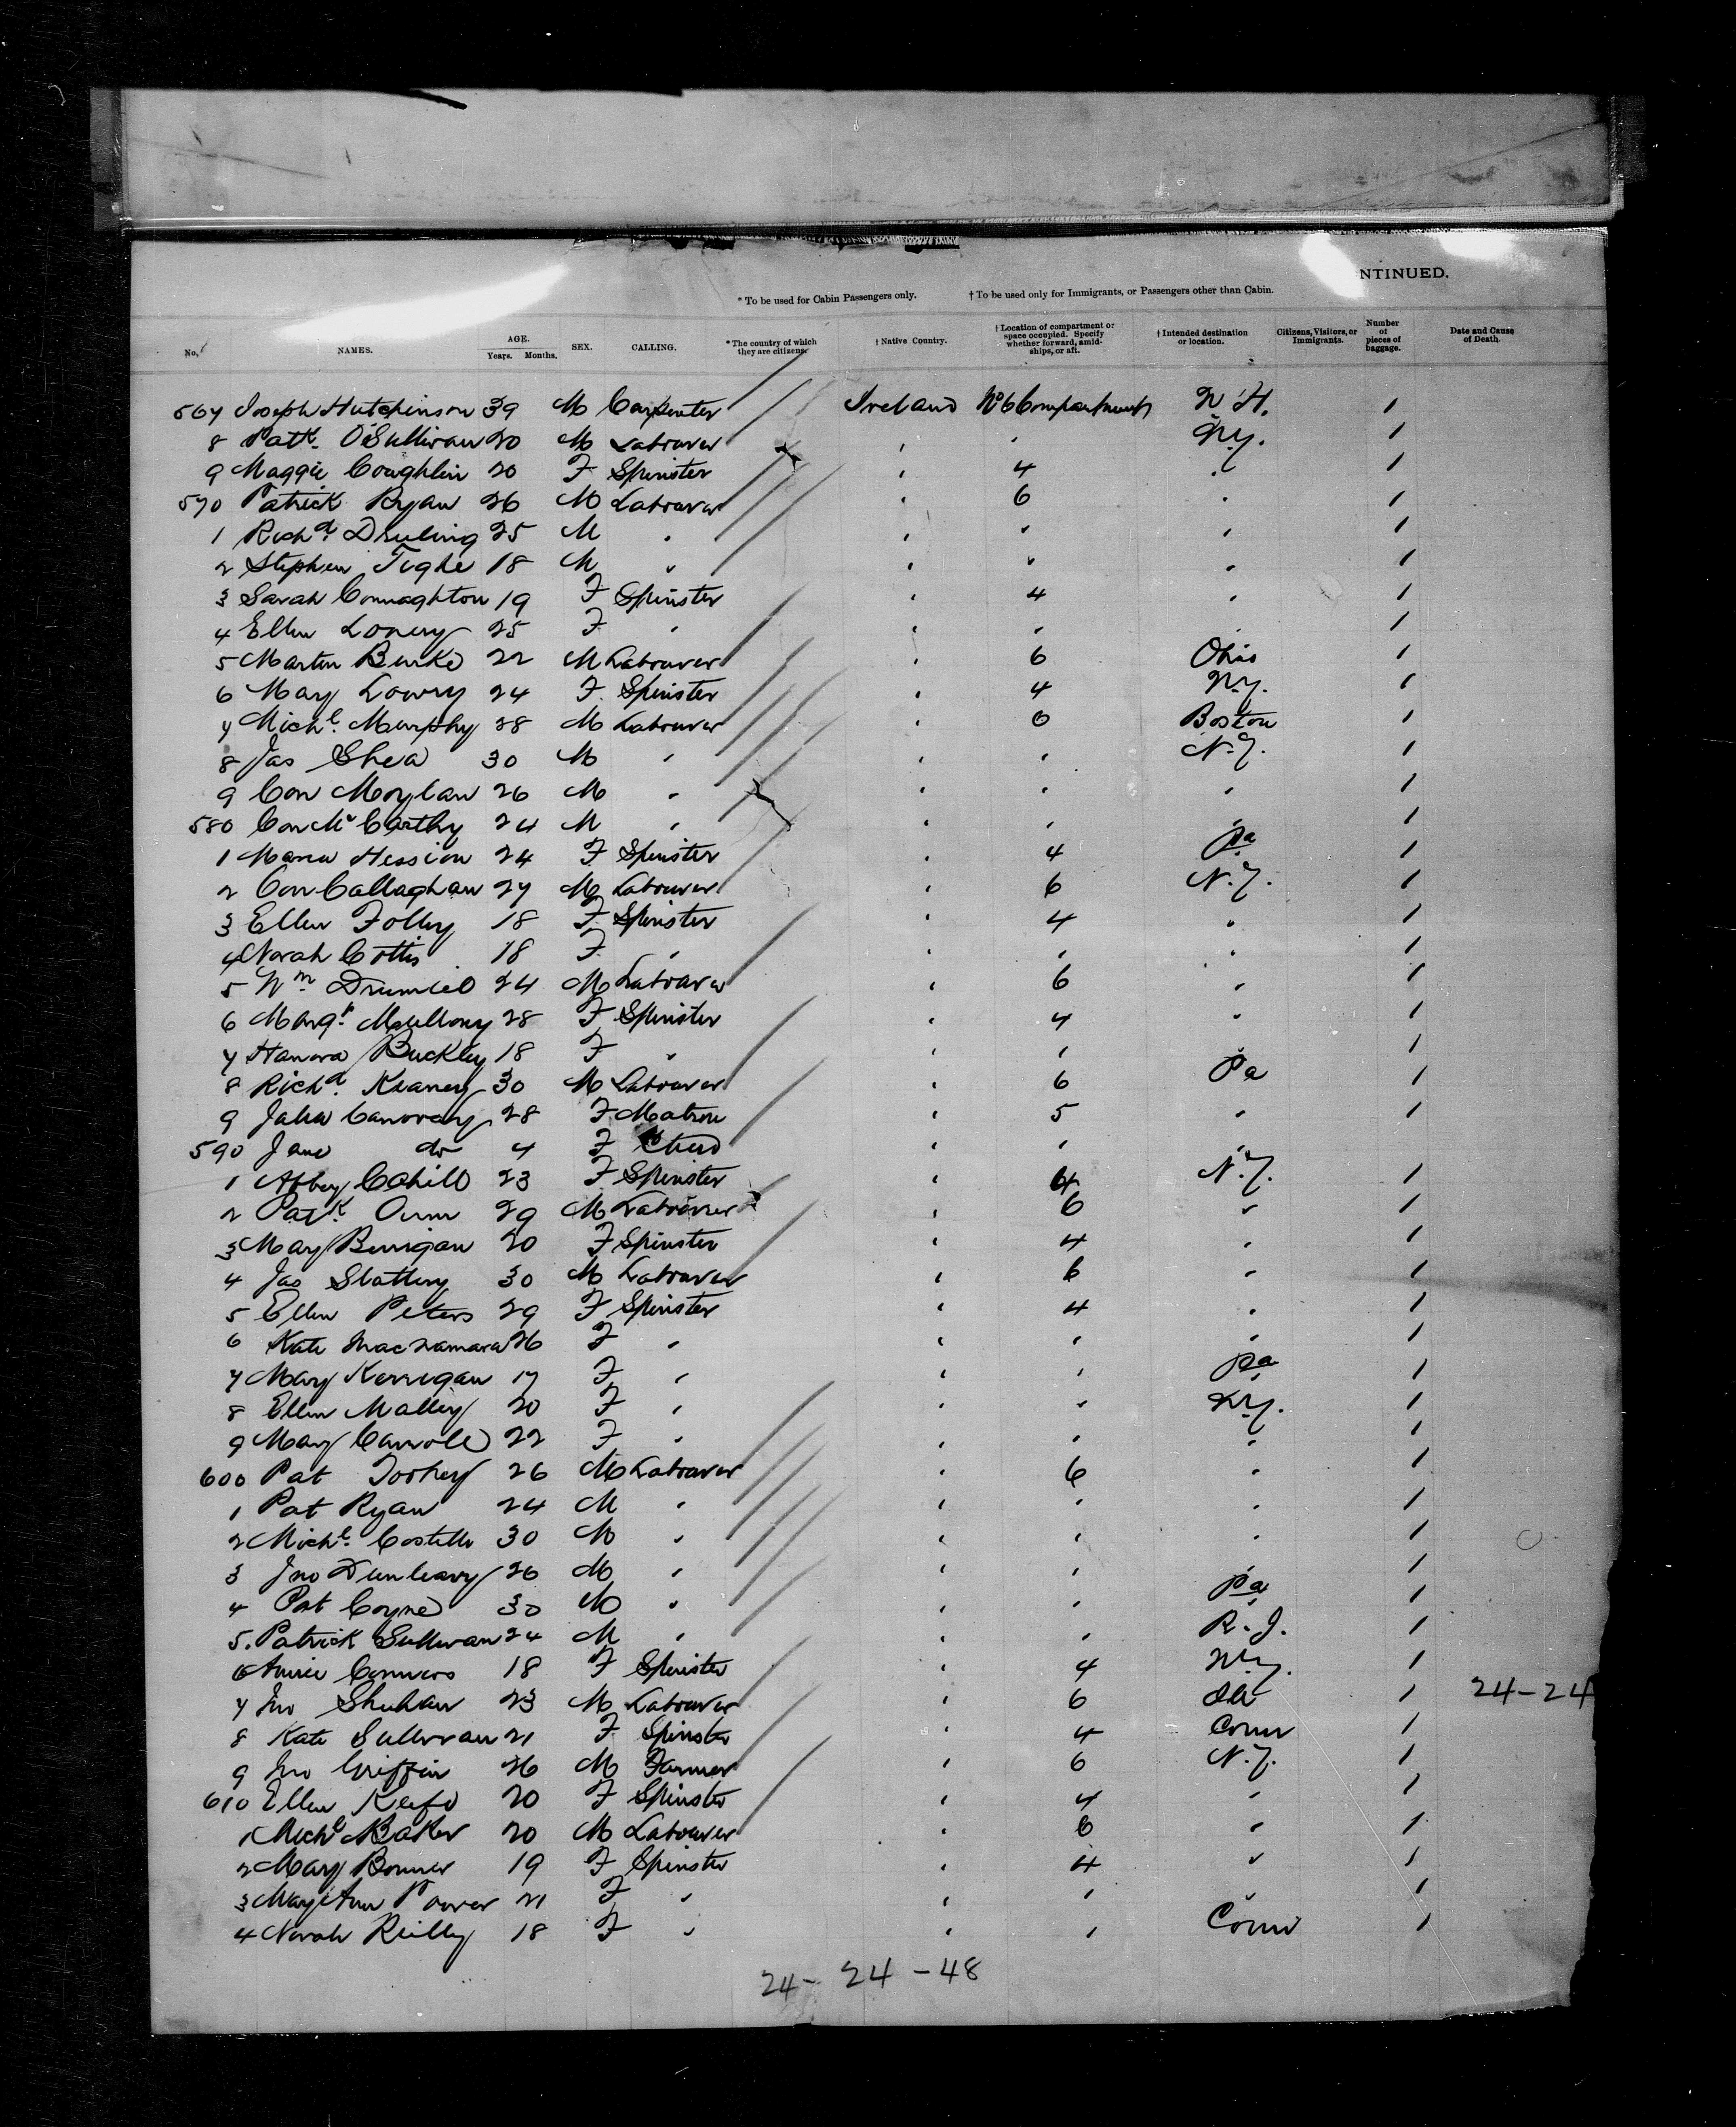 NTINUED.
* To be used for Cabin Passengers only. † To be used only for Immigrants, or Passengers other than Cabin.
No. NAMES. AGE. Years. Months. SEX. CALLING. * The country of which they are citizens. † Native Country. † Location of compartment or space occupied. Specify whether forward, amidships, or aft. † Intended destination or location. Citizens, Visitors, or Immigrants. Number of pieces of baggage. Date and Cause of Death.
567 Joseph Hutchinson 39 M Carpenter Ireland No 6 Compartment N.H. 1
8 Patk. O'Sullivan 20 M Labourer " " N.Y. 1
9 Maggie Coughlin 20 F Spinster " 4 " 1
570 Patrick Ryan 26 M Labourer " 6 " 1
1 Richd. Druling 25 M " " " " 1
2 Stephen Tighe 18 M " " " " 1
3 Sarah Connaghton 19 F Spinster " 4 " 1
4 Ellen Lonery 25 F " " " " 1
5 Martin Burke 22 M Labourer " 6 Ohio 1
6 Mary Lowry 24 F Spinster " 4 N.Y. 1
7 Michl. Murphy 28 M Labourer " 6 Boston 1
8 Jas Shea 30 M " " " N.Y. 1
9 Con Moylan 26 M " " " " 1
580 Con McCarthy 24 M " " " " 1
1 Maria Hession 24 F Spinster " 4 Pa 1
2 Con Callaghan 27 M Labourer " 6 N.Y. 1
3 Ellen Folley 18 F Spinster " 4 " 1
4 Norah Cottis 18 F " " " " 1
5 Wm 24 M Labourer " 6 " 1
6 Margt. 28 F Spinster " 4 " 1
7 Hanora Buckley 18 F " " " " 1
8 Richd. Keaney 30 M Labourer " 6 Pa 1
9 Julia Canovay 28 F Matron " 5 " 1
590 Jane do 4 F Child " " "
1 Abbey Cahill 23 F Spinster " 4 N.Y. 1
2 Patk. 29 M Labourer " 6 " 1
3 Mary Berrigan 20 F Spinster " 4 " 1
4 Jas Slattery 30 M Labourer " 6 " 1
5 Ellen Peters 29 F Spinster " 4 " 1
6 Kate Macnamara 26 F " " " " 1
7 Mary Kerrigan 17 F " " " Pa 1
8 Ellen Malley 20 F " " " N.Y. 1
9 Mary Carroll 22 F " " " " 1
600 Pat Toohey 26 M Labourer " 6 " 1
1 Pat Ryan 24 M " " " " 1
2 Michl. Costello 30 M " " " " 1
3 Jno Dunleavy 26 M " " " " 1
4 Pat Coyne 30 M " " " Pa 1
5. Patrick Sullivan 24 M " " " R.I. 1
6 Annie Connors 18 F Spinster " 4 N.Y. 1
7 Jno Shehan 23 M Labourer " 6 Ill 1 24-24
8 Kate Sullivan 21 F Spinster " 4 Conn 1
9 Jno Griffin 26 M Farmer " 6 N.Y. 1
610 Ellen Keefe 20 F Spinster " 4 " 1
1 Michl Baker 20 M Labourer " 6 " 1
2 Mary Bonner 19 F Spinster " 4 " 1
3 Mary Ann Power 21 F " " " " 1
4 Norah Reilly 18 F " " " Conn 1
24- 24 -48